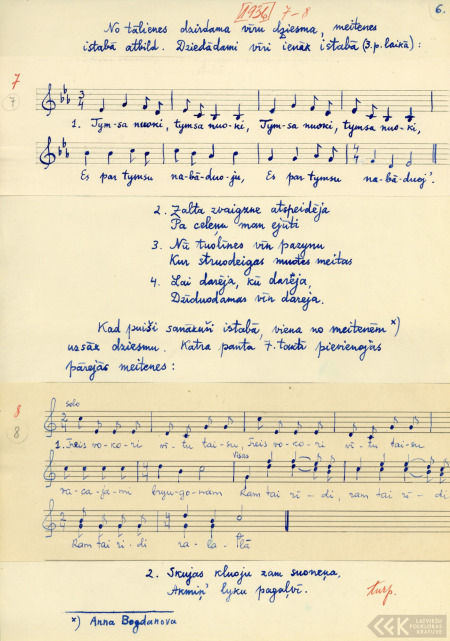 1936 7-8
6.
No tālienes dzirdama vīru dziesma, meitenes
istabā atbild. Dziedādami vīri ienāk istabā (3.p. laikā):
7
7
1. Tym-sa nuoki, tymsa nuo-ki, Tym-sa nuoki, tymsa nuo-ki,
Es par tymsu na-bā-duo-ju, Es par tymsu na-bā-duoj'.
2. Zalta zvaigzne atspeidēja
Pa celeņu man ejūti
3. Nū tuolīnes vīn pazynu
Kur struodeigas muotes meitas
4. Lai darēja, kū darēja,
Dzīduodamas vīn darēja.
Kad puiši sanākuši istabā, viena no meitenēm x)
uzsāk dziesmu. Katra panta 7. taktī pievienojās
pārējās meitenes:
8
8
solo
1. Treis vo-ko-ri vī-tu tai-su, Treis vo-ko-ri vī-tu tai-su
Visas
va-ca-ja-mi bryu-go-nam Ram tai rī-di, ram tai rī-di
Ram tai ri-di ra-la-lā
2. Skujas kluoju zam suoneņa,
Akmiņ' lyku pagaļvī.
turp.
x) Anna Bogdanova
LATVIEŠU
FOLKLORAS
KRĀTUVE